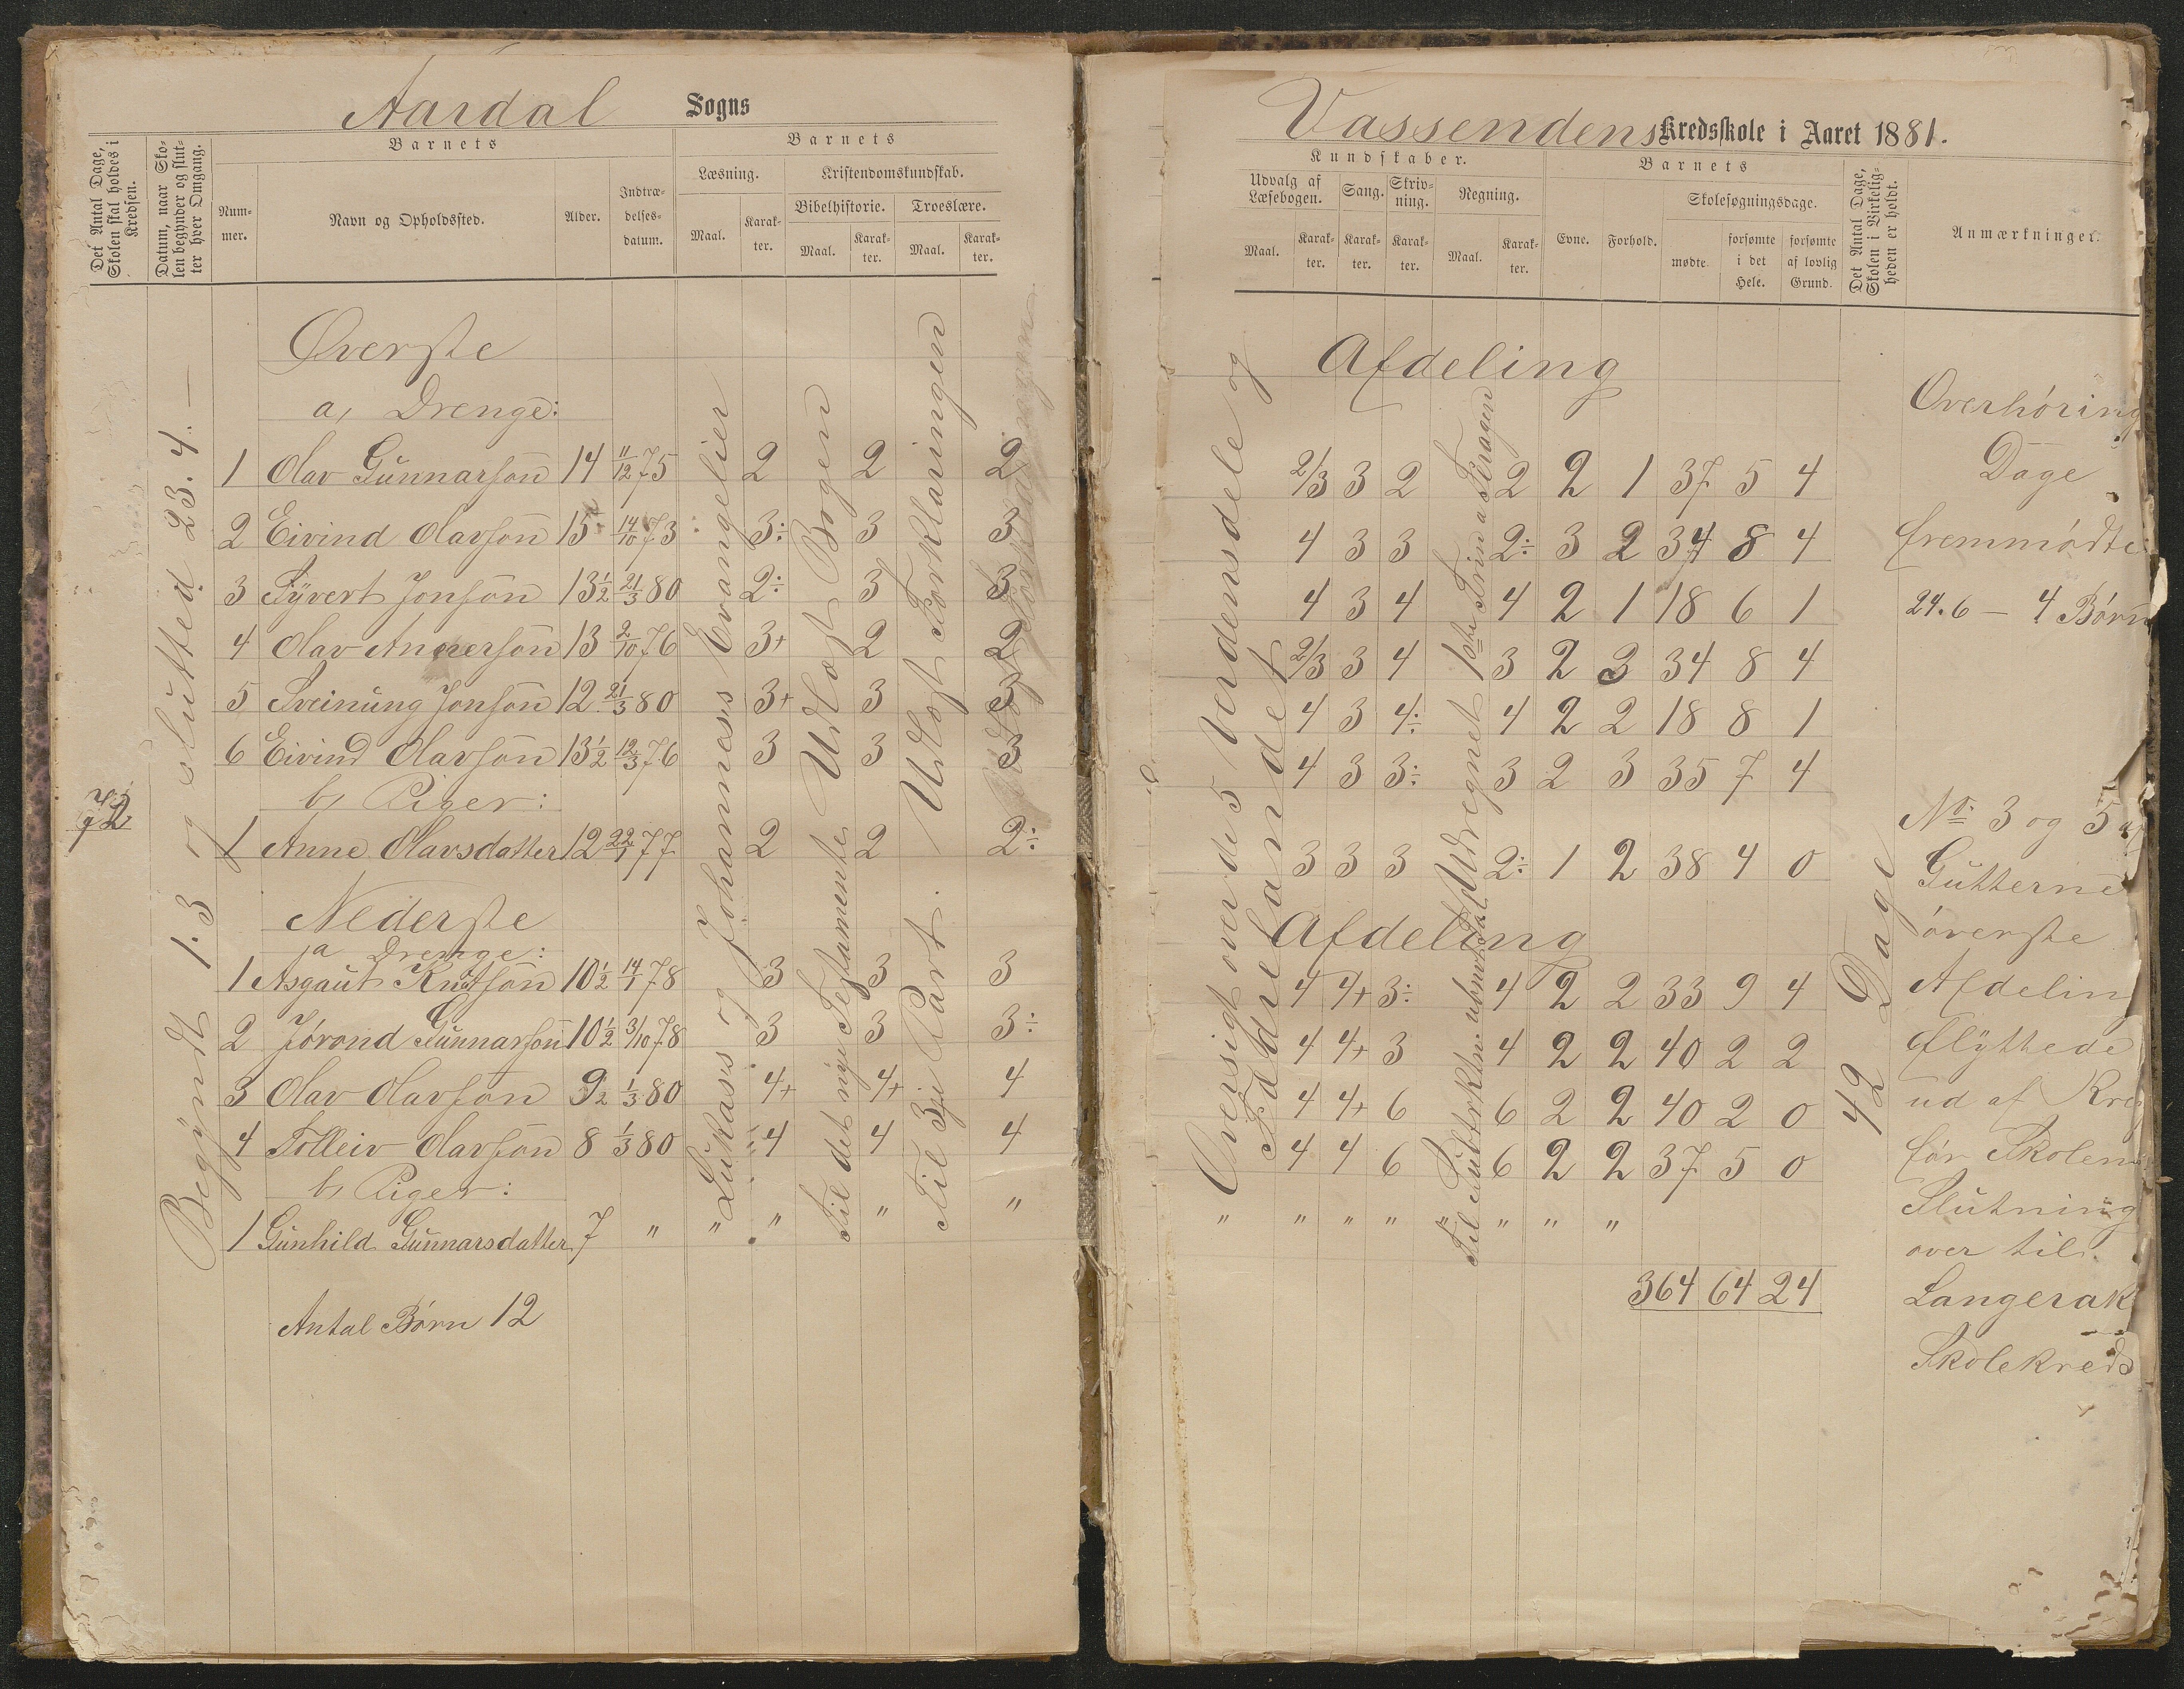 Aardal Sogns
Det Antal Dage, Skolen skal holdes i Kredsen.
Datum, naar Skolen begynder og slutter hver Omgang.
Barnets
Nummer.
Navn og Opholdssted.
Alder.
Indtrædelsesdatum.
Barnets
Læsning.
Maal.
Karakter.
Kristendomskundskab.
Bibelhistorie.
Maal.
Karakter.
Troeslære.
Maal.
Karakter.
Øverste
a, Drenge:
1 Olav Gunnarson 14 11/12 75 2 2 2
2 Eivind Olavson 15 14/10 73 3÷ 3 3
3 Syvert Jonson 13½ 21/3 80 2÷ 3 3
4 Olav Anderson 13 2/10 76 3+ 2 2
5 Sveinung Jonson 12 21/3 80 3+ 3 3
6 Eivind Olavson 13½ 12/3 76 3 3 3
b, Piger:
1 Anne Olavsdatter 12 22/1 77 2 2 2÷
Nederste
a Drenge:
1 Asgaut Knutson 10½ 14/1 78 3 3 3
2 Jórond Gunnarson 10½ 3/10 78 3 3 3÷
3 Olav Olavson 9½ 1/3 80 4+ 4+ 4
4 Tolleiv Olavson 8 1/3 80 4 4 4
b, Piger:
1 Gunhild Gunnarsdatter 7 " " " " "
Antal Børn 12
72
Begyndt 1.3 og slutted 23.4.—
Lukas's og Johannes's Evangelier
Til det nye Testamente Udlagt Bogen
Til 3je Part. Udlagt Forklaringen
Vassendens Kredsskole i Aaret 1881.
Kundskaber.
Udvalg af Læsebogen.
Maal.
Karakter.
Sang.
Karakter.
Skrivning.
Karakter.
Regning.
Maal.
Karakter.
Barnets
Evne.
Forhold.
Skolesøgningsdage.
mødte
forsømte i det Hele.
forsømte af lovlig Grund.
Det Antal Dage, Skolen i Virkeligheden er holdt.
Anmærkninger.
Afdeling
2/3 3 2 2 2 1 37 5 4
4 3 3 2÷ 3 2 34 8 4
4 3 4 4 2 1 18 6 1
2/3 3 4 3 2 3 34 8 4
4 3 4÷ 4 2 2 18 8 1
4 3 3÷ 3 2 3 35 7 4
3 3 3 2÷ 1 2 38 4 0
Afdeling
4 4+ 3÷ 4 2 2 33 9 4
4 4+ 3 4 2 2 40 2 2
4 4+ 6 6 2 2 40 2 0
4 4 6 6 2 2 37 5 0
" " " " " " " "
364 64 24
Oversigt over de 5 Verdensdele og
Fædrelandet
Udregnet 1ste Trin a
42 Dage
Overhøring
Dage
fremmødte
24.6 — 4 Børn
No. 3 og 5 af
Gutterne
øverste
Afdeling
flyttede
ud af
før Skolens
Slutning
over til
Langerak
Skolekreds